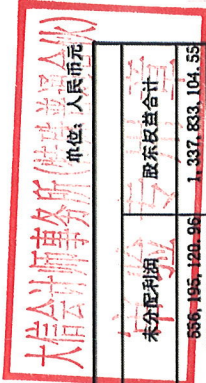 大信会计师事务所(特殊普通合伙)
单位：人民币元
未分配利润 股东权益合计
556,195,120.96 1,337,833,104.55